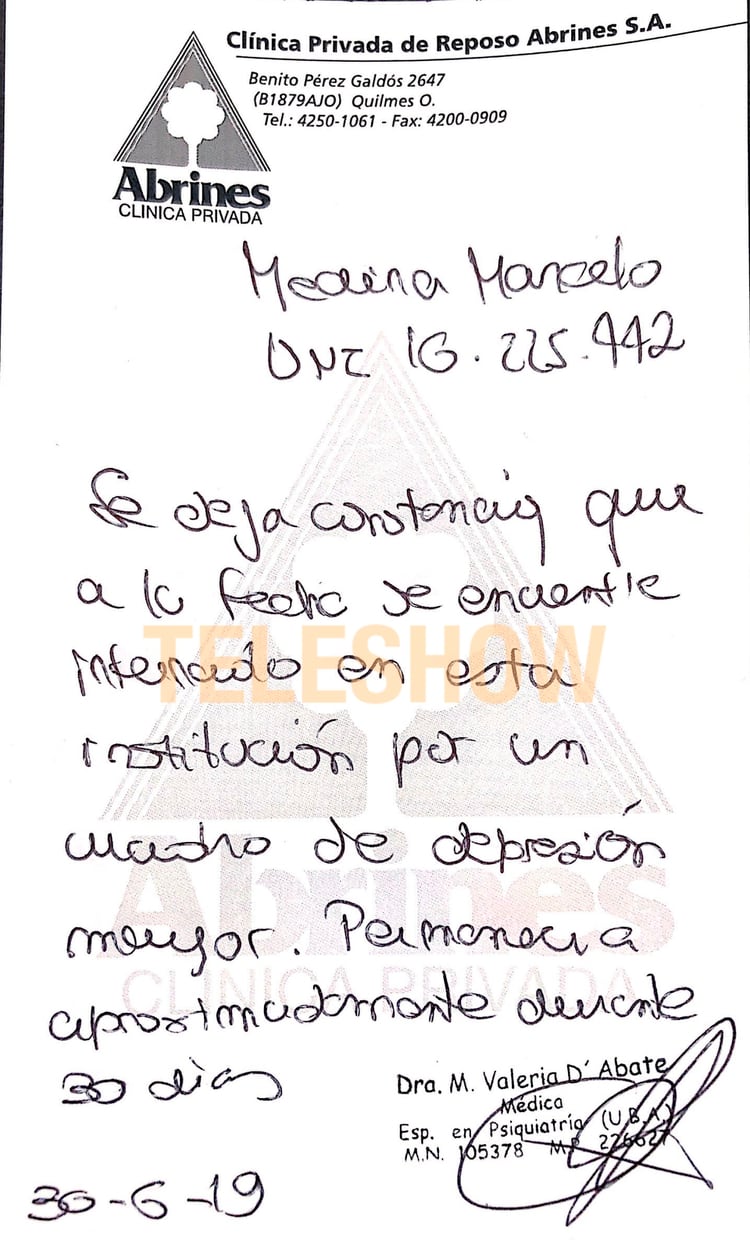 Clínica Privada de Reposo Abrines S.A.
Benito Pérez Galdós 2647
(B1879AJO) Quilmes O.
Tel.: 4250-1061 - Fax: 4200-0909
Abrines
CLINICA PRIVADA
Medina Marcelo
DNI 16.225.442
Se deja constancia que
a la fecha se encuentra
internado en esta
TELESHOW
institución por un
cuadro de depresión
Abrines
mayor. Permanecera
CLINICA PRIVADA
aproximadamente durante
30 dias
Dra. M. Valeria D´Abate
Médica
Esp. en Psiquiatría (U.B.A.)
M.N. 105378 M.P.
30-6-19